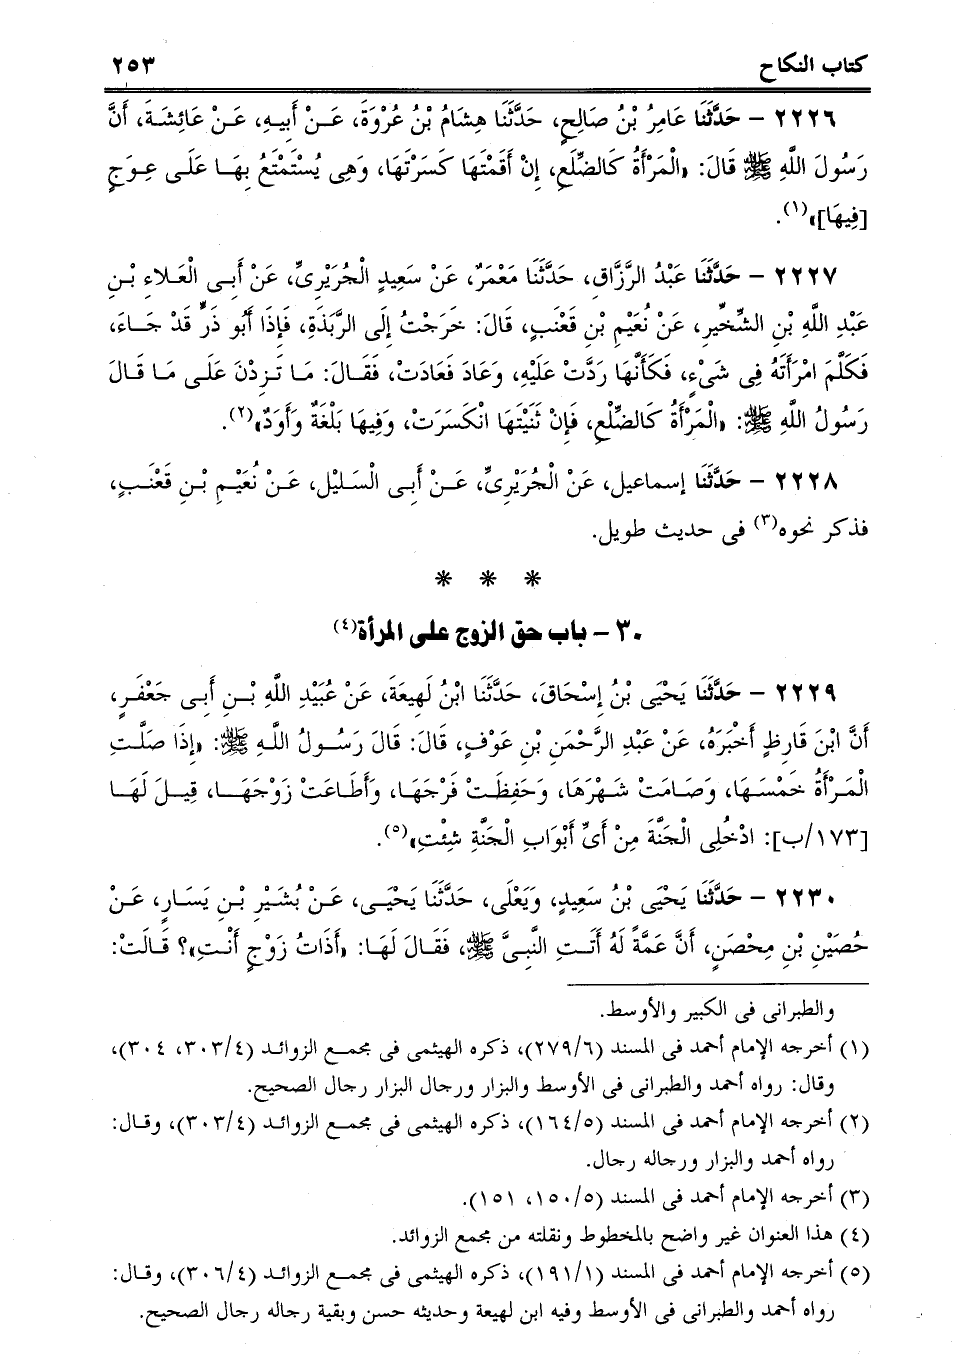 كتاب النكاح ٢٥٣
٢٢٢٦ - حَدَّثَنَا عَامِرُ بْنُ صَالِحٍ، حَدَّثَنَا هِشَامُ بْنُ عُرْوَةَ، عَنْ أَبِيهِ، عَنْ عَائِشَةَ، أَنَّ
رَسُولَ اللَّهِ ﷺ قَالَ: «الْمَرْأَةُ كَالضِّلَعِ، إِنْ أَقَمْتَهَا كَسَرْتَهَا، وَهِى يُسْتَمْتَعُ بِهَا عَلَى عِوَجٍ
[فِيهَا]»(١).
٢٢٢٧ - حَدَّثَنَا عَبْدُ الرَّزَّاقِ، حَدَّثَنَا مَعْمَرٌ، عَنْ سَعِيدٍ الْجُرَيْرِىِّ، عَنْ أَبِى الْعَلاءِ بْنِ
عَبْدِ اللَّهِ بْنِ الشِّخِّيرِ، عَنْ نُعَيْمِ بْنِ قَعْنَبٍ، قَالَ: خَرَجْتُ إِلَى الرَّبَذَةِ، فَإِذَا أَبُو ذَرٍّ قَدْ جَاءَ،
فَكَلَّمَ امْرَأَتَهُ فِى شَىْءٍ، فَكَأَنَّهَا رَدَّتْ عَلَيْهِ، وَعَادَ فَعَادَتْ، فَقَالَ: مَا تَزِدْنَ عَلَى مَا قَالَ
رَسُولُ اللَّهِ ﷺ: «الْمَرْأَةُ كَالضِّلْعِ، فَإِنْ ثَنَيْتَهَا انْكَسَرَتْ، وَفِيهَا بَلْغَةٌ وَأَوَدٌ»(٢).
٢٢٢٨ - حَدَّثَنَا إسماعيل، عَنْ الْجُرَيْرِىِّ، عَنْ أَبِى السَّلِيْل، عَنْ نُعَيْمِ بْنِ قَعْنَبٍ،
فذكر نحوه(٣) فى حديث طويل.
* * *
٣٠ - باب حق الزوج على المرأة(٤)
٢٢٢٩ - حَدَّثَنَا يَحْيَى بْنُ إِسْحَاقَ، حَدَّثَنَا ابْنُ لَهِيعَةَ، عَنْ عُبَيْدِ اللَّهِ بْنِ أَبِى جَعْفَرٍ،
أَنَّ ابْنَ قَارِظٍ أَخْبَرَهُ، عَنْ عَبْدِ الرَّحْمَنِ بْنِ عَوْفٍ، قَالَ: قَالَ رَسُولُ اللَّهِ ﷺ: «إِذَا صَلَّتِ
الْمَرْأَةُ خَمْسَهَا، وَصَامَتْ شَهْرَهَا، وَحَفِظَتْ فَرْجَهَا، وَأَطَاعَتْ زَوْجَهَا، قِيلَ لَهَا
[١٧٣/ب]: ادْخُلِى الْجَنَّةَ مِنْ أَىِّ أَبْوَابِ الْجَنَّةِ شِئْتِ»(٥).
٢٢٣٠ - حَدَّثَنَا يَحْيَى بْنُ سَعِيدٍ، وَيَعْلَى، حَدَّثَنَا يَحْيَى، عَنْ بُشَيْرِ بْنِ يَسَارٍ، عَنْ
حُصَيْنِ بْنِ مِحْصَنٍ، أَنَّ عَمَّةً لَهُ أَتَتِ النَّبِىَّ ﷺ، فَقَالَ لَهَا: «أَذَاتُ زَوْجٍ أَنْتِ»؟ قَالَتْ:
والطبرانى فى الكبير والأوسط.
(١) أخرجه الإمام أحمد فى المسند (٢٧٩/٦)، ذكره الهيثمى فى مجمع الزوائد (٣٠٣/٤، ٣٠٤)،
وقال: رواه أحمد والطبرانى فى الأوسط والبزار ورجال البزار رجال الصحيح.
(٢) أخرجه الإمام أحمد فى المسند (١٦٤/٥)، ذكره الهيثمى فى مجمع الزوائد (٣٠٣/٤)، وقال:
رواه أحمد والبزار ورجاله رجال.
(٣) أخرجه الإمام أحمد فى المسند (١٥٠/٥، ١٥١).
(٤) هذا العنوان غير واضح بالمخطوط ونقلته من مجمع الزوائد.
(٥) أخرجه الإمام أحمد فى المسند (١٩١/١)، ذكره الهيثمى فى مجمع الزوائد (٣٠٦/٤)، وقال:
رواه أحمد والطبرانى فى الأوسط وفيه ابن لهيعة وحديثه حسن وبقية رجاله رجال الصحيح.